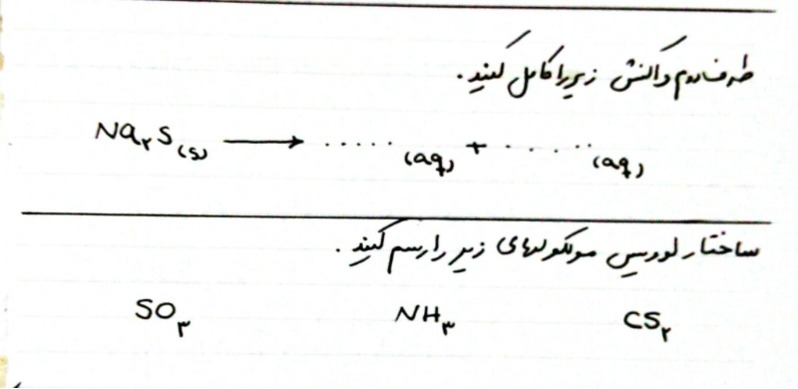 طرف دوم واکنش زیر را کامل کنید.
Na۲S(s) ⟶ ..... (aq) + ..... (aq)
ساختار لوویس مولکولهای زیر را رسم کنید.
SO۳ NH۳ CS۲